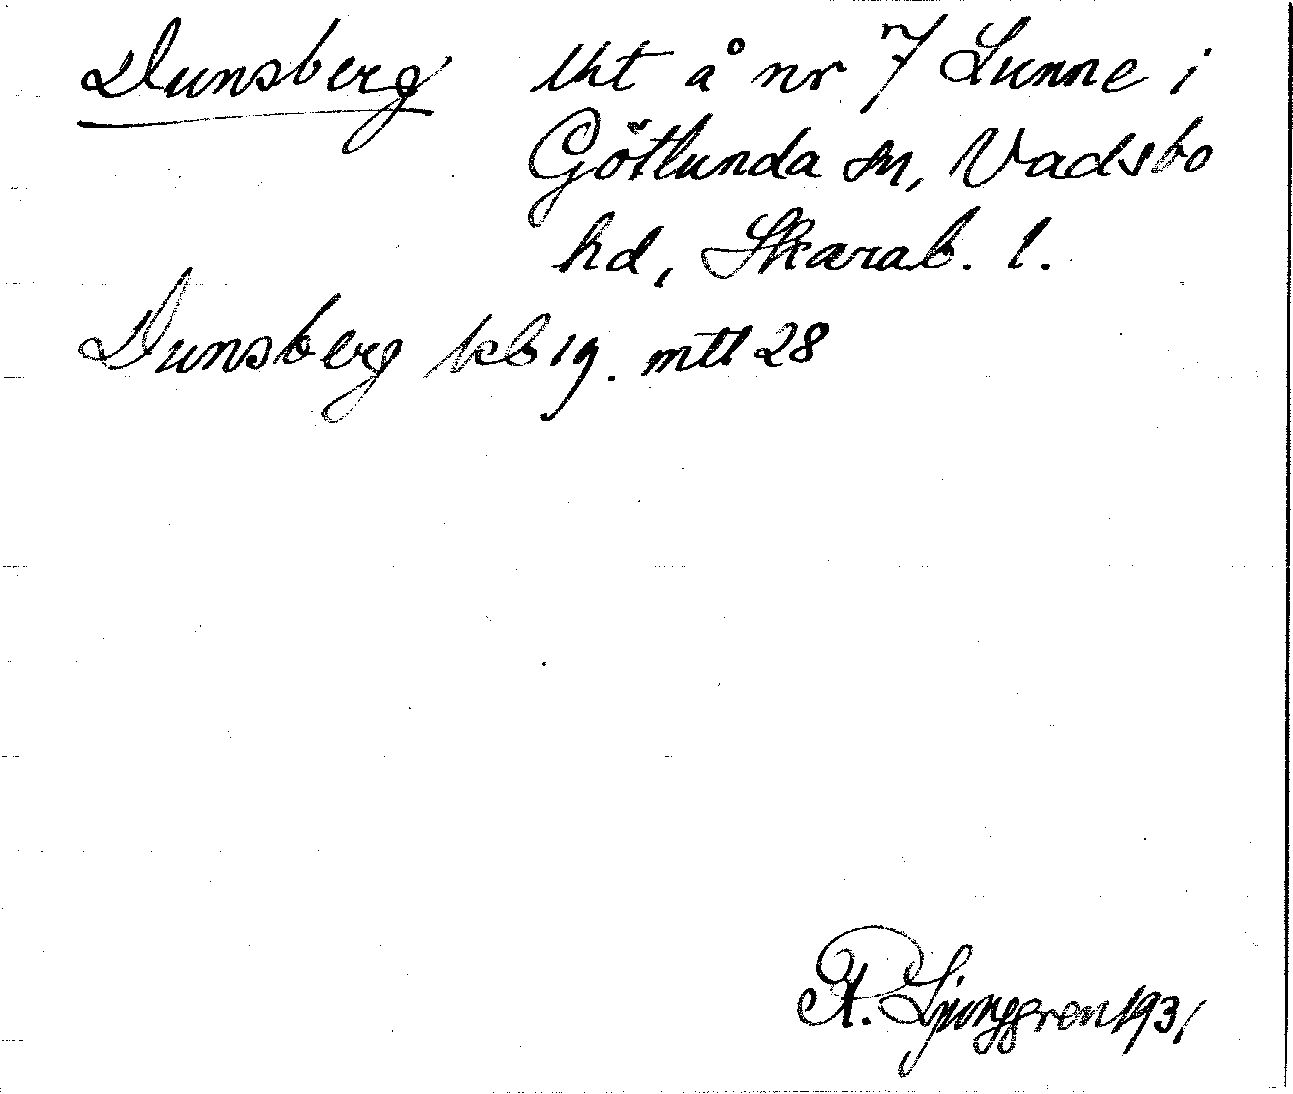 Dunsberg lht å nr 7 Lunne i
Götlunda sn, Vadsbo
hd, Skarab. l.
Dunsberg kb 19. mtl 28
R. Ljunggren 1931